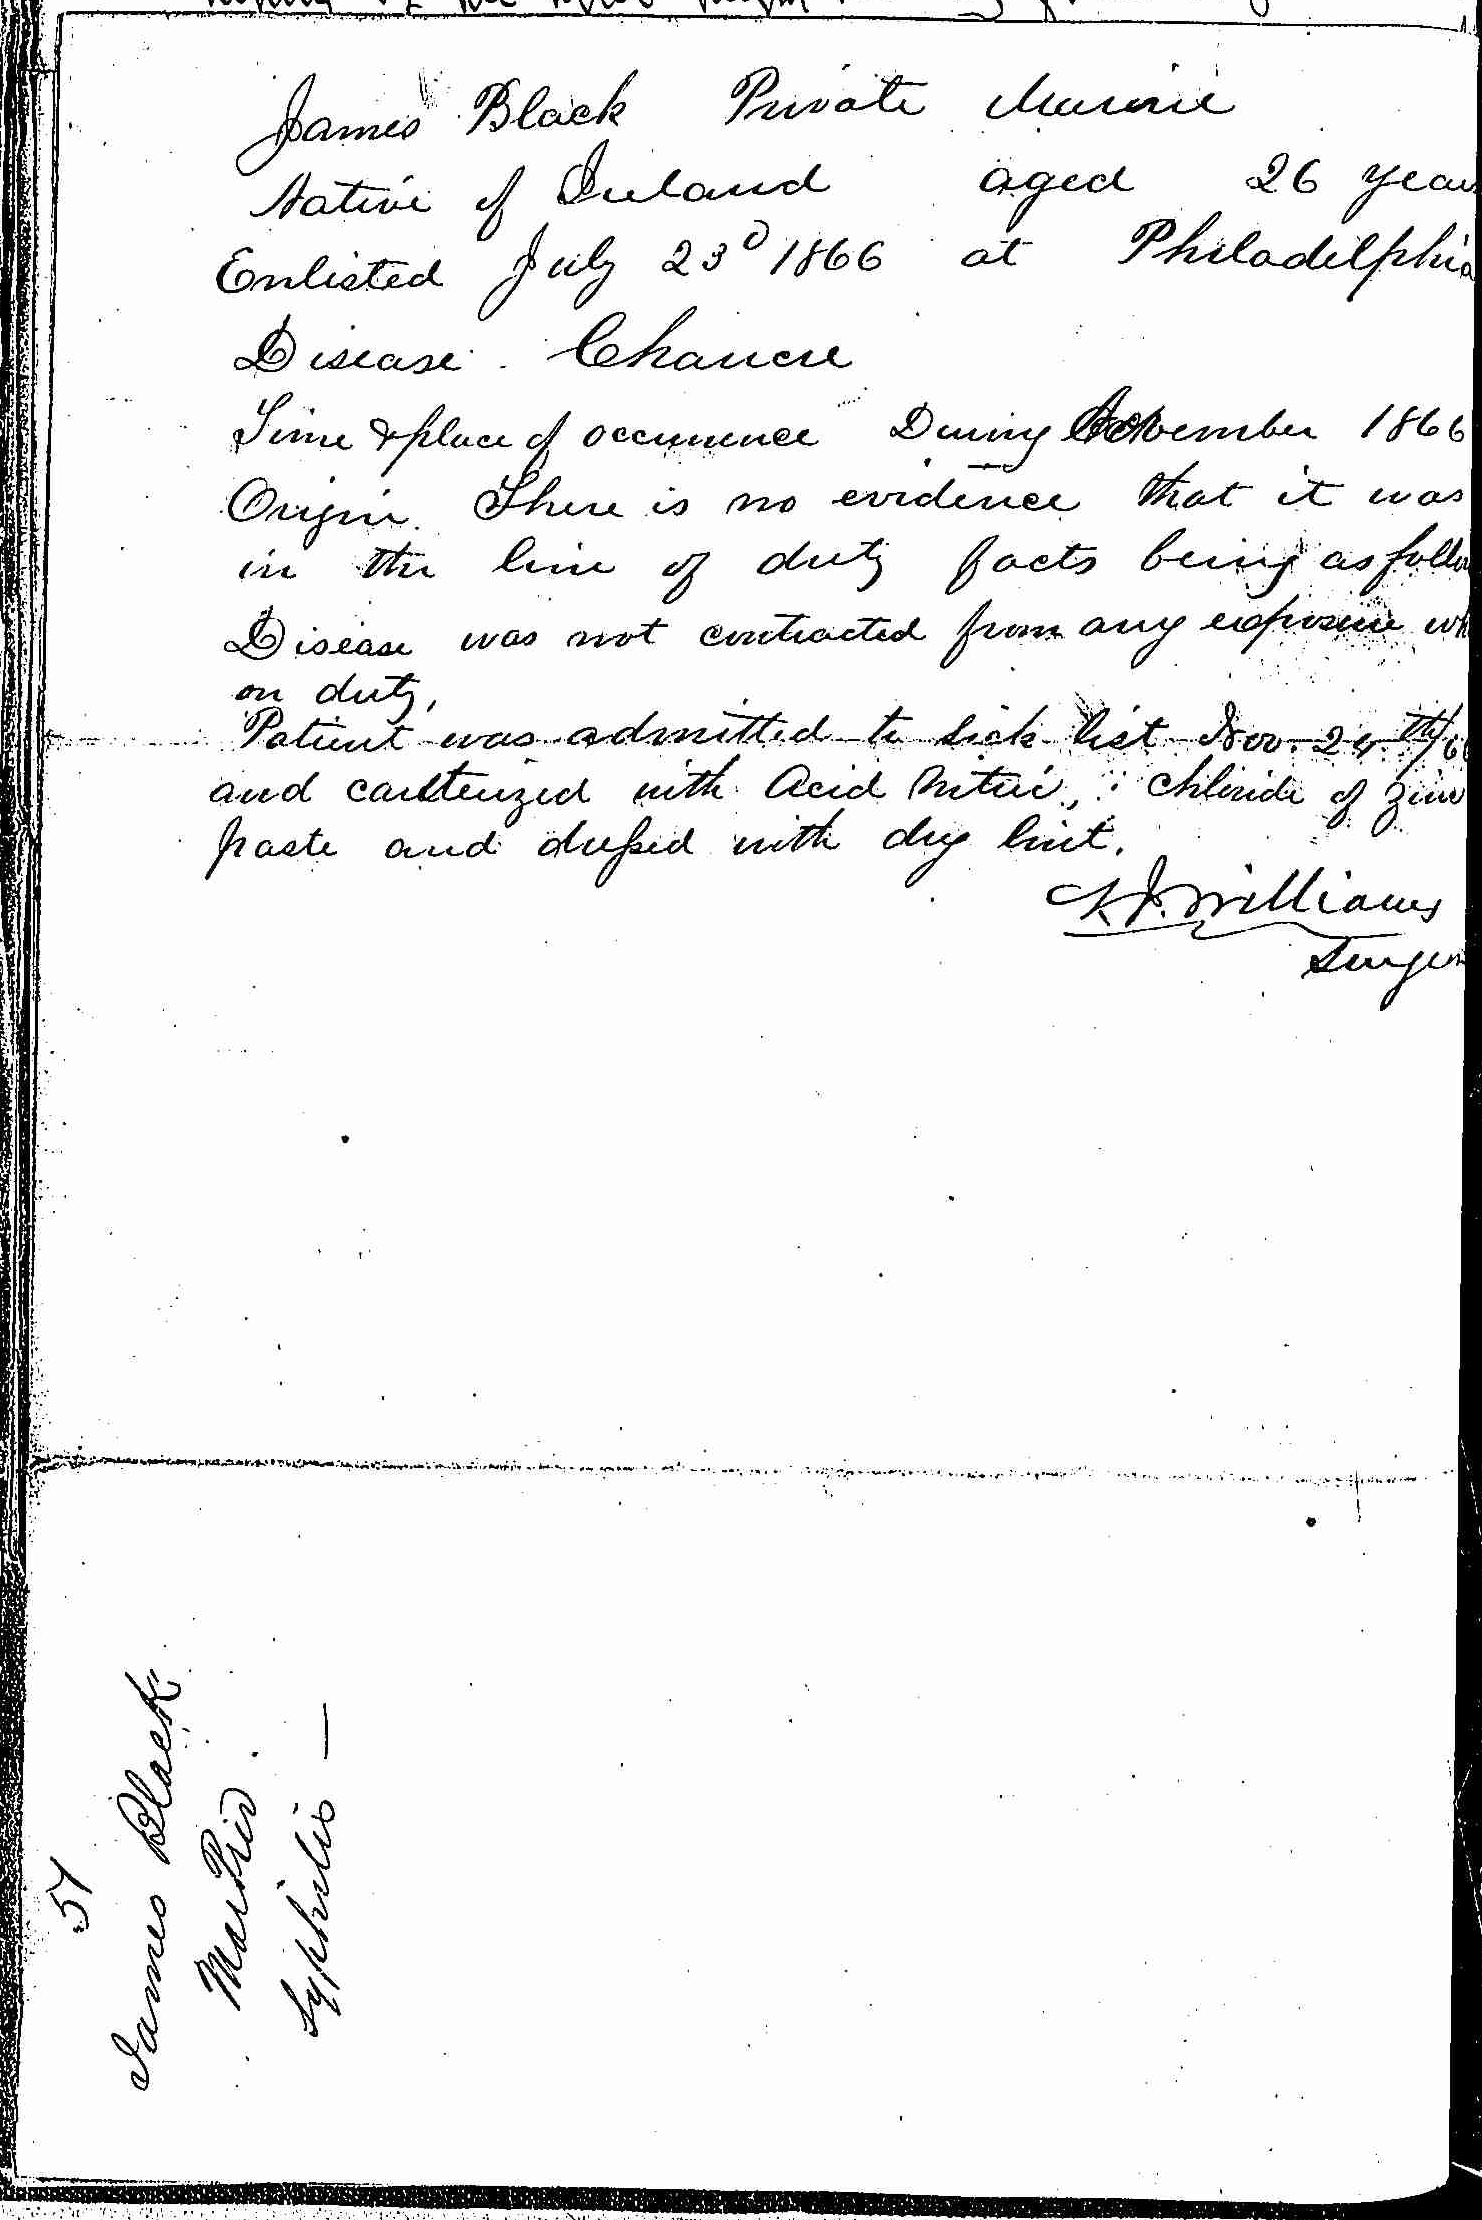 James Black Private Marine
Native of Ireland aged 26 years
Enlisted July 23d 1866 at Philadelphia
Disease. Chancre
Time & place of occurrence During November 1866
Origin. There is no evidence that it was
in the line of duty facts being as follo
Disease was not contracted from any exposure wh
on duty,
Patient was admitted to sick list Nov. 24th/66
and cauterized with Acid Nitric, chloride of zinc
paste and dressed with dry lint.
Williams
Surgeon
51
James Black
Mar Priv.
Syphilis —